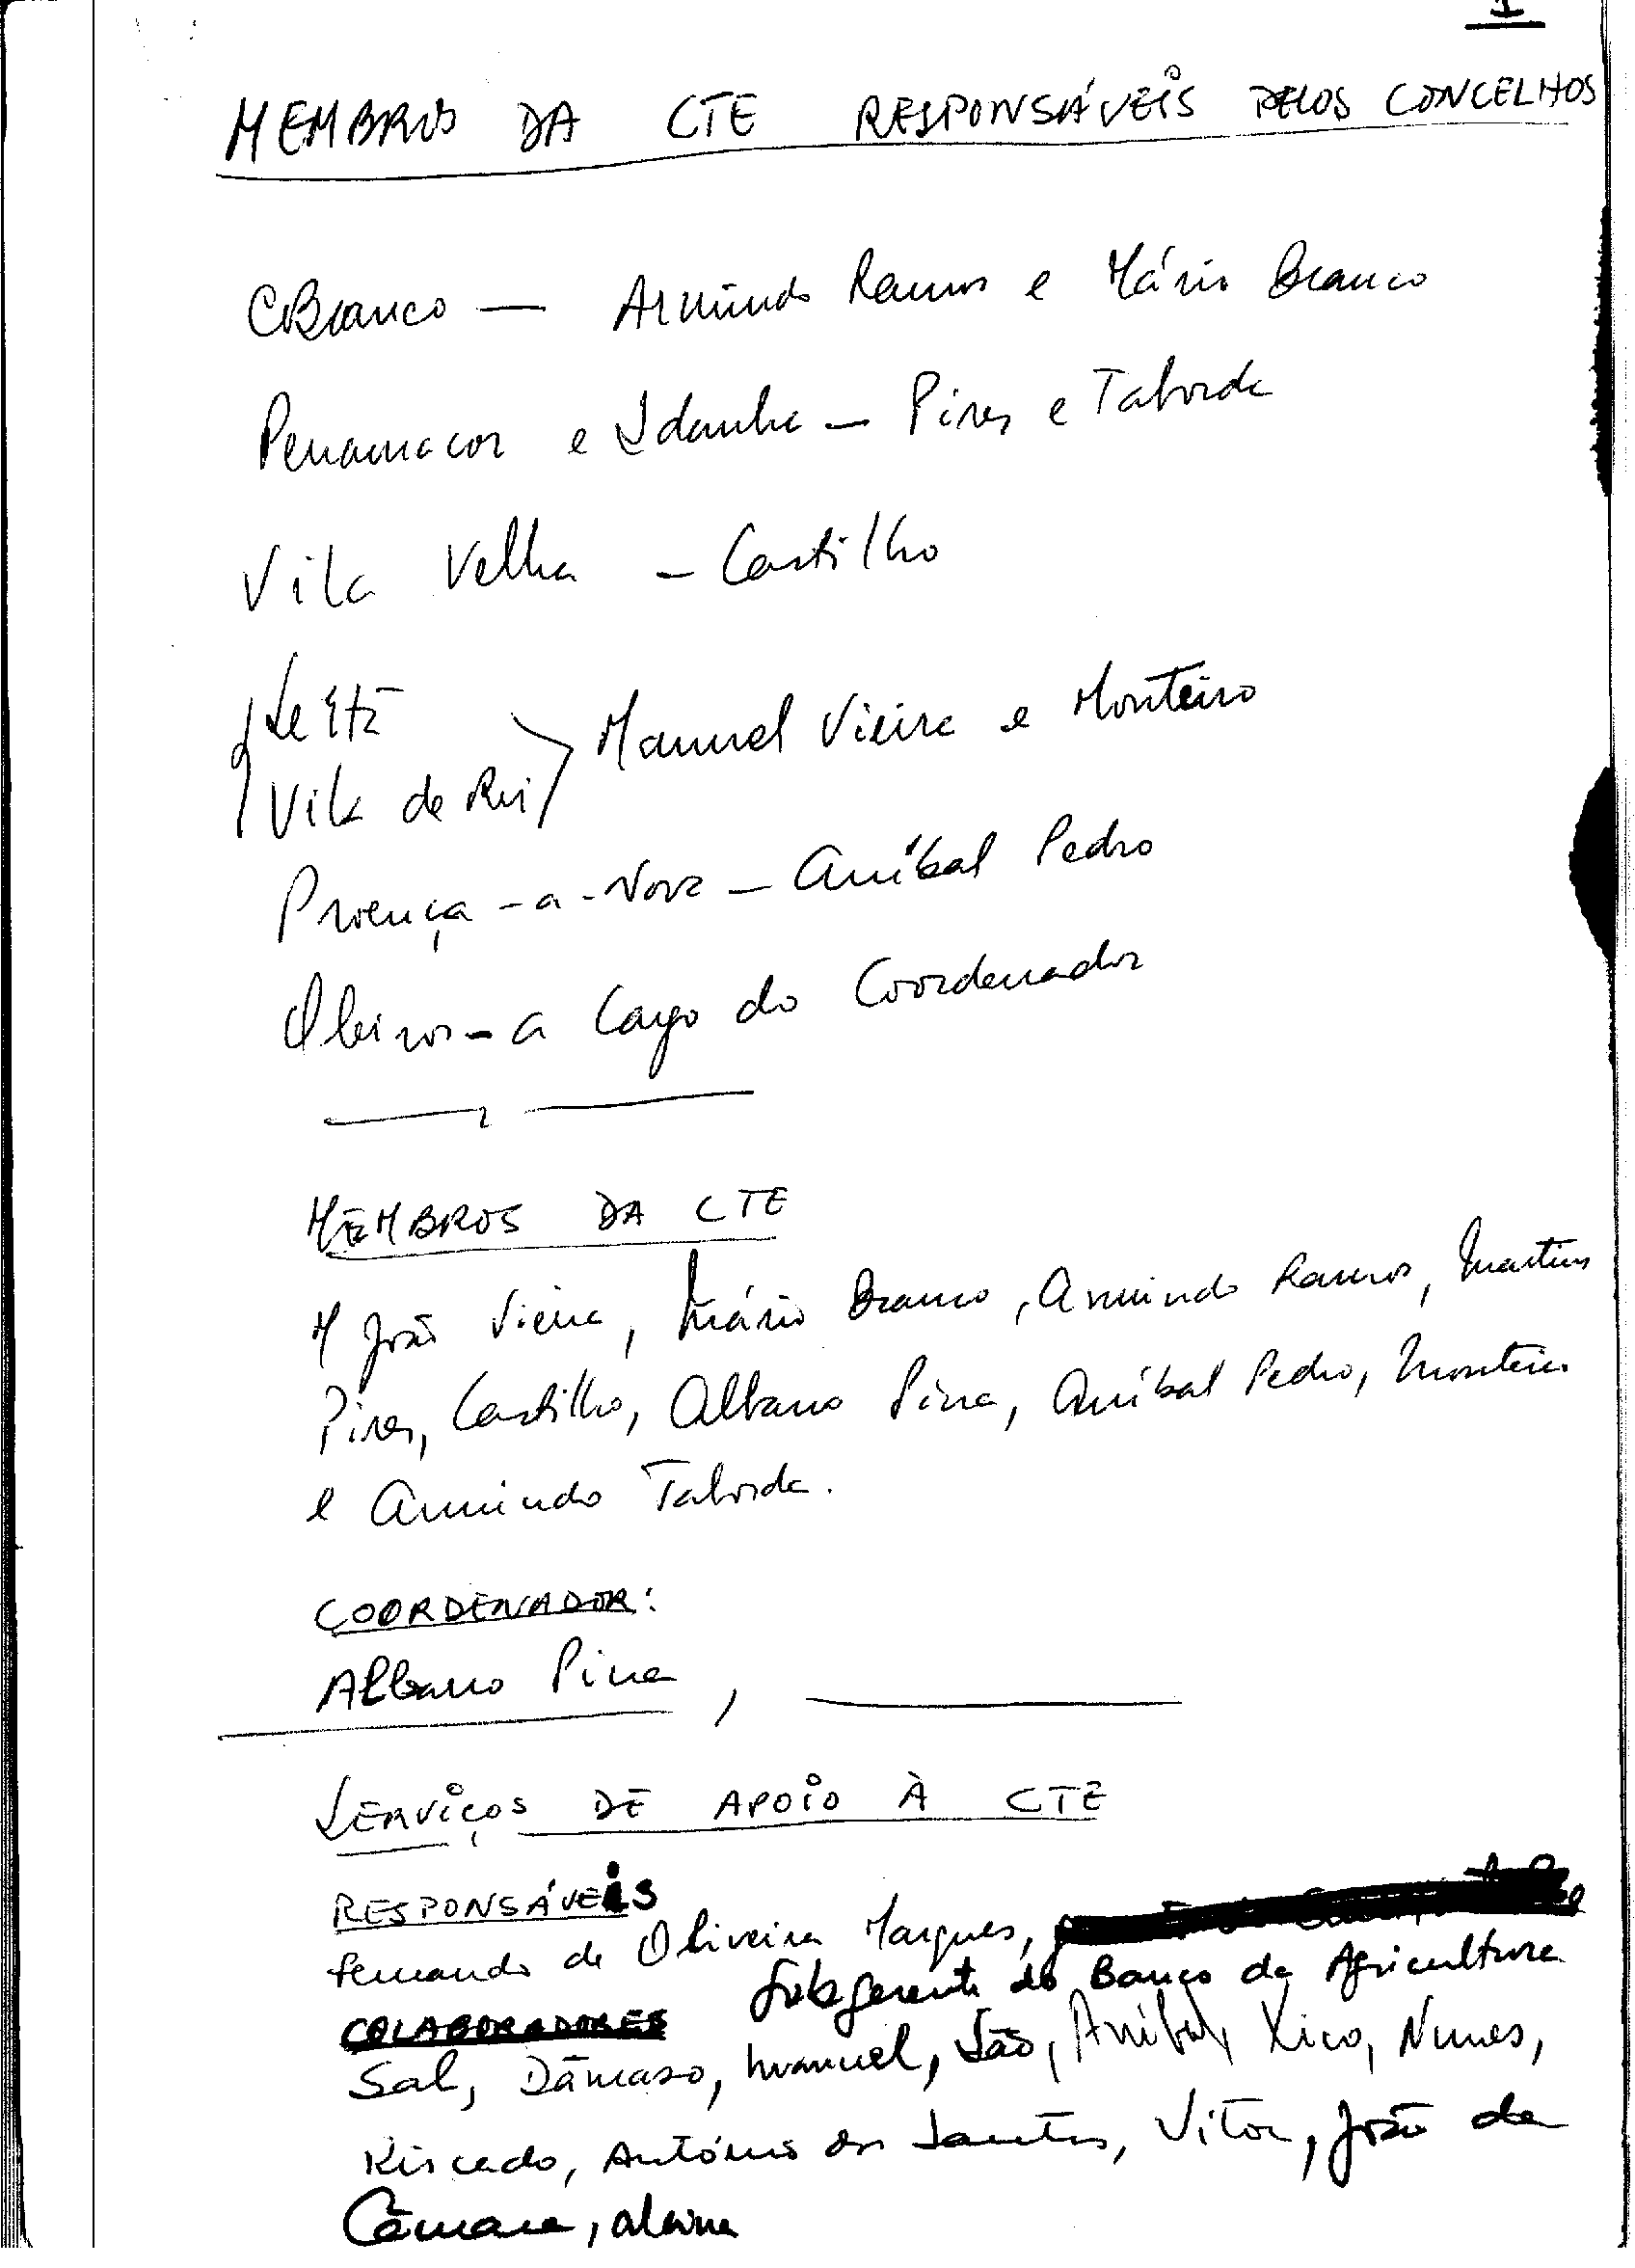 1
MEMBROS DA CTE RESPONSÁVEIS PELOS CONCELHOS
CBranco — Armindo Ramos e Mário Branco
Penamacor e Idanha — Pires e Taborda
Vila Velha — Castilho
Sertã
Manuel Vieira e Monteiro
Vila de Rei
Proença-a-Nova — Aníbal Pedro
Oleiros — a cargo do Coordenador
MEMBROS DA CTE
M João Vieira, Mário Branco, Armindo Ramos, Martins
Pires, Castilho, Albano Pina, Aníbal Pedro, Monteiro
e Armindo Taborda.
COORDENADOR:
Albano Pina,
SERVIÇOS DE APOIO À CTE
RESPONSÁVEIS
Fernando de Oliveira Marques,
Subgerente do Banco da Agricultura
COLABORADORES
Sal, Dâmaso, Manuel, São, Aníbal, Xico, Nunes,
Riscado, António dos Santos, Vitor, João da
Câmara,